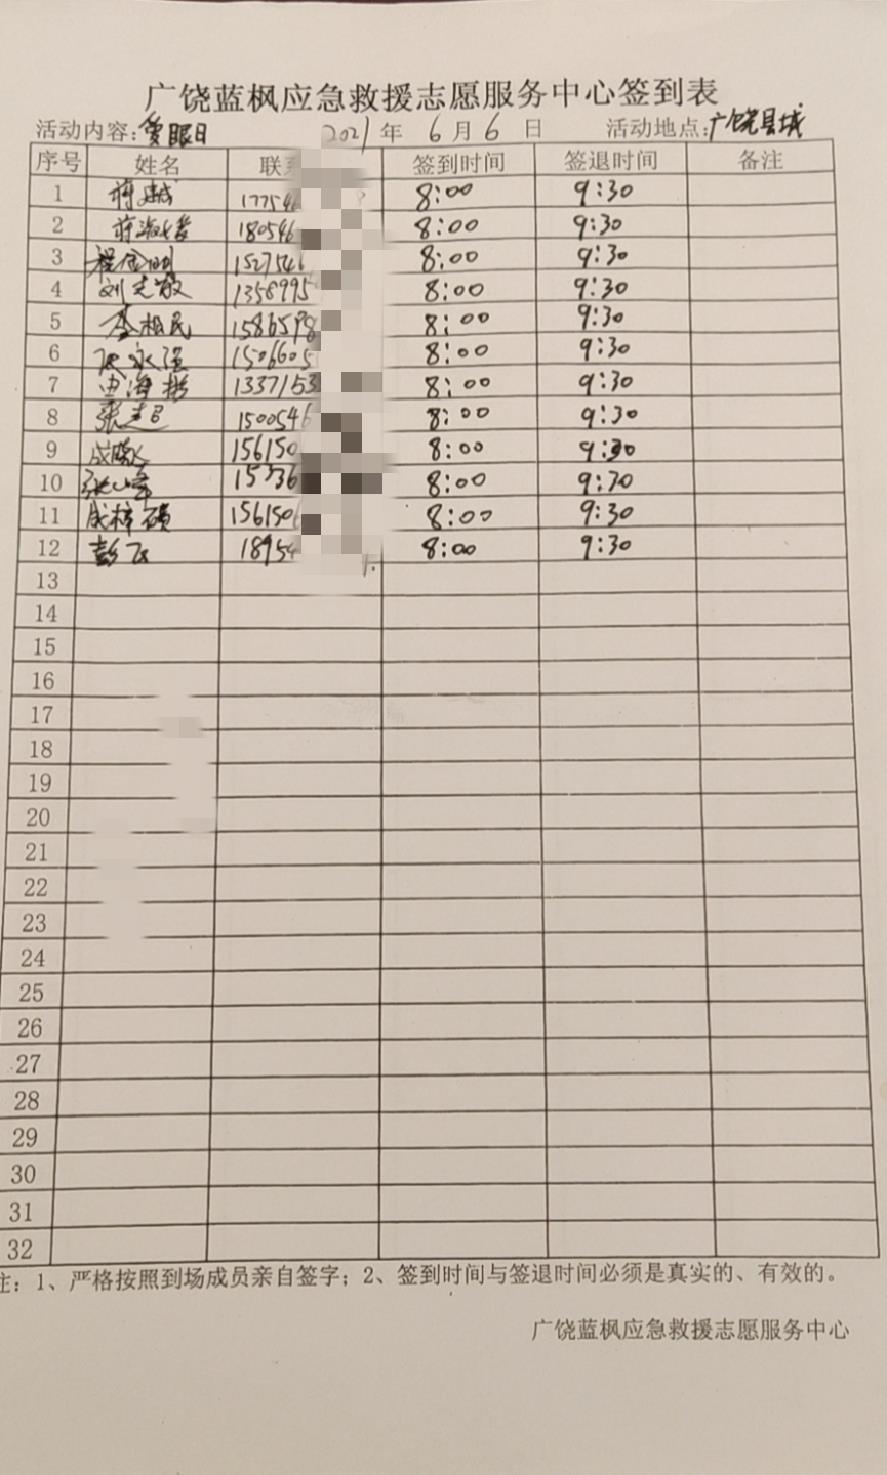 广饶蓝枫应急救援志愿服务中心签到表
活动内容:爱眼日 2021年 6月6日 活动地点:广饶县城
序号 姓名 联系 签到时间 签退时间 备注
1 蒋 17754 8:00 9:30
2 蒋 180546 8:00 9:30
3 程 1527546 8:00 9:30
4 刘志敏 1358995 8:00 9:30
5 李相民 1586598 8:00 9:30
6 永强 1506605 8:00 9:30
7 海 1337153 8:00 9:30
8 张建 1500546 8:00 9:30
9 成 156150 8:00 9:30
10 张 15736 8:00 9:30
11 成梓硕 156150 8:00 9:30
12 彭飞 18954 8:00 9:30
13
14
15
16
17
18
19
20
21
22
23
24
25
26
27
28
29
30
31
32
注：1、严格按照到场成员亲自签字；2、签到时间与签退时间必须是真实的、有效的。
广饶蓝枫应急救援志愿服务中心